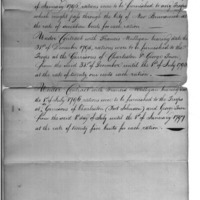 of January 1796, rations were to be furnished to any troops
which might pass through the City of New Brunswick at
the rate of nineteen cents for each ration.
Under Contract with Francis Mulligan bearing date the
31st of December 1794, rations were to be furnished to the
Troops at the Garrisons of Charleston & George Town,
from the said 31st of December until the 1st of July 1796
at the rate of twenty one cents each ration.
Under Contract with Francis Mulligan bearing
the 1st of July 1796 rations were to be furnished to the Troops
at Garrisons of Charleston (Fort Johnson) and George Town
from the said 1st day of July until the 1st of January 1797
at the rate of twenty five cents for each ration.